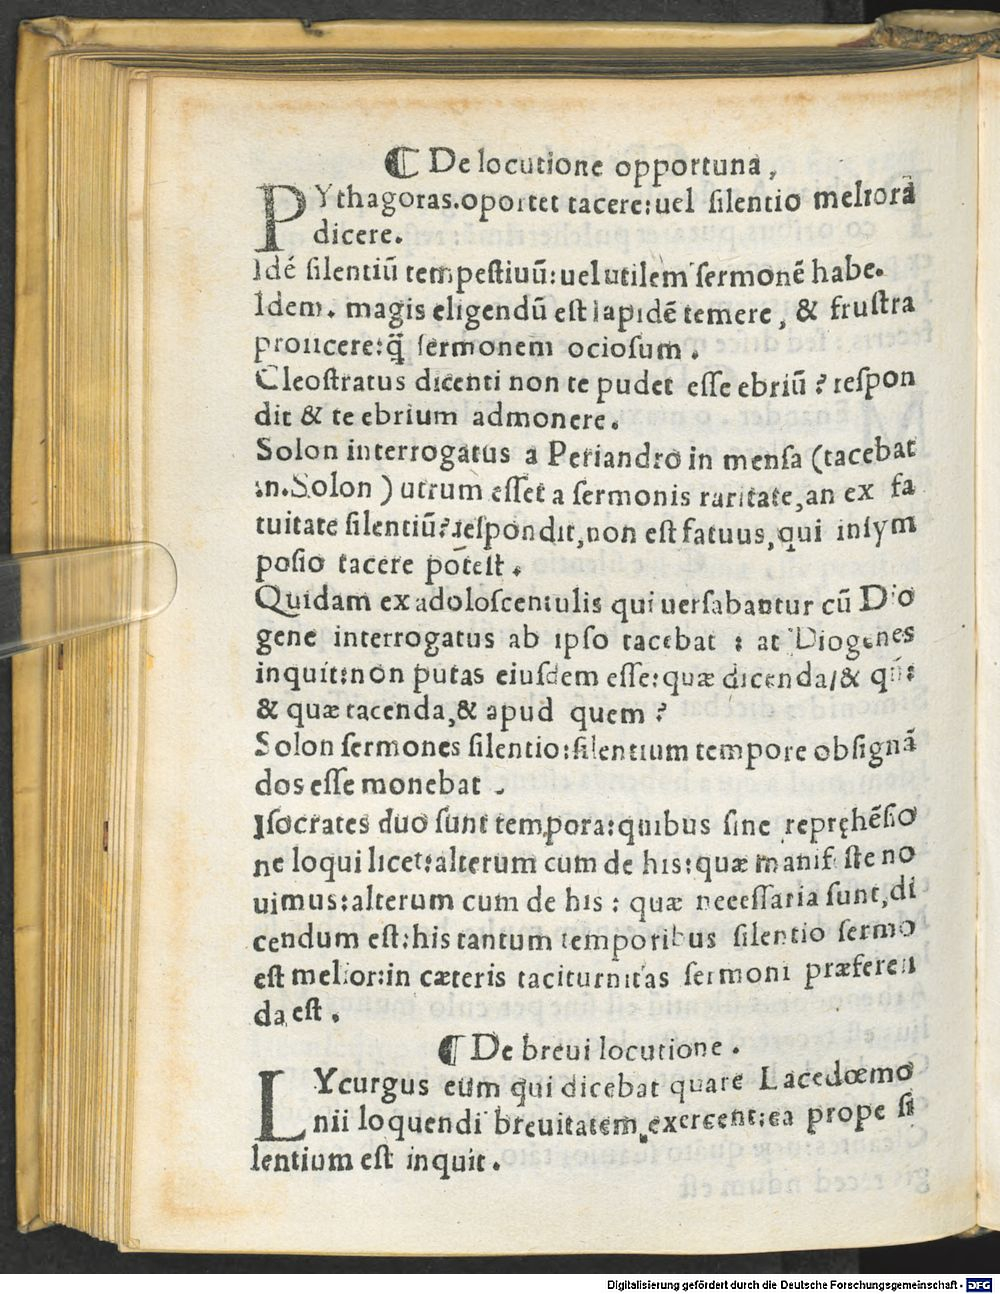 ⸿ De locutione opportuna,
PYthagoras.oportet tacere:uel ſilentio meliora
dicere.
Idē ſilentiū tempeſtiuū:uel utilem ſermonē habe.
Idem. magis eligendū eſt lapidē temere, & fruſtra
proiicere:q̄ ſermonem ocioſum.
Cleoſtratus dicenti non te pudet eſſe ebriū ? reſpon
dit & te ebrium admonere.
Solon interrogatus a Periandro in menſa (tacebat
.n.Solon ) utrum eſſet a ſermonis raritate,an ex fa
tuitate ſilentiū?reſpondit,non eſt fatuus,qui inſym
poſio tacere poteſt.
Quidam ex adoloſcentulis qui uerſabantur cū Dio
gene interrogatus ab ipſo tacebat : at Diogenes
inquit:non putas eiuſdem eſſe:quæ dicenda/&
& quæ tacenda,& apud quem ?
Solon ſermones ſilentio:ſilentium tempore obſignā
dos eſſe monebat .
Iſocrates duo ſunt tempora:quibus ſine repręhēſio
ne loqui licet:alterum cum de his:quæ manifeſte no
uimus:alterum cum de his : quæ neceſſaria ſunt,di
cendum eſt:his tantum temporibus ſilentio ſermo
eſt melior:in cæteris taciturnitas ſermoni præferen
da eſt.
⸿ De breui locutione.
LYcurgus eum qui dicebat quare Lacedœmo
nii loquendi breuitatem exercent:ea prope ſi
lentium eſt inquit.
Digitalisierung gefördert durch die Deutsche Forschungsgemeinschaft - DFG